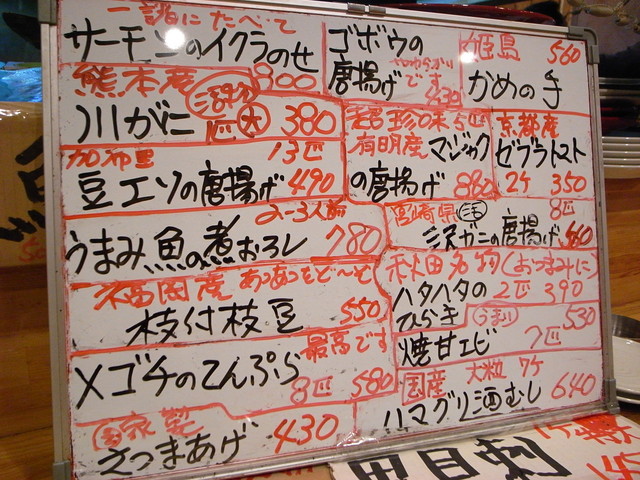 一諸にたべて
サーモンのイクラのせ
800
熊本産
活物
川がに
1匹 大 380
加布里
13匹
豆エソの唐揚げ 490
2~3人前
うまみ魚の煮おろし 780
福岡産 あつあつをど~と
枝付枝豆 550
最高です
メゴチのてんぷら
8匹 580
自家製
さつまあげ 430
ゴボウの
唐揚げ
です
430
姫島 560
かめの手
珍味 5匹
有明産 マジャク
の唐揚げ 880
京都産
ゼブラトマト
2ケ 350
宮崎県 活 8匹
沢ガニの唐揚げ 460
秋田名物(おつまみに)
ハタハタの 2匹 390
ひらき
530
焼甘エビ 7匹
国産 大粒 7ケ
ハマグリ酒むし 640